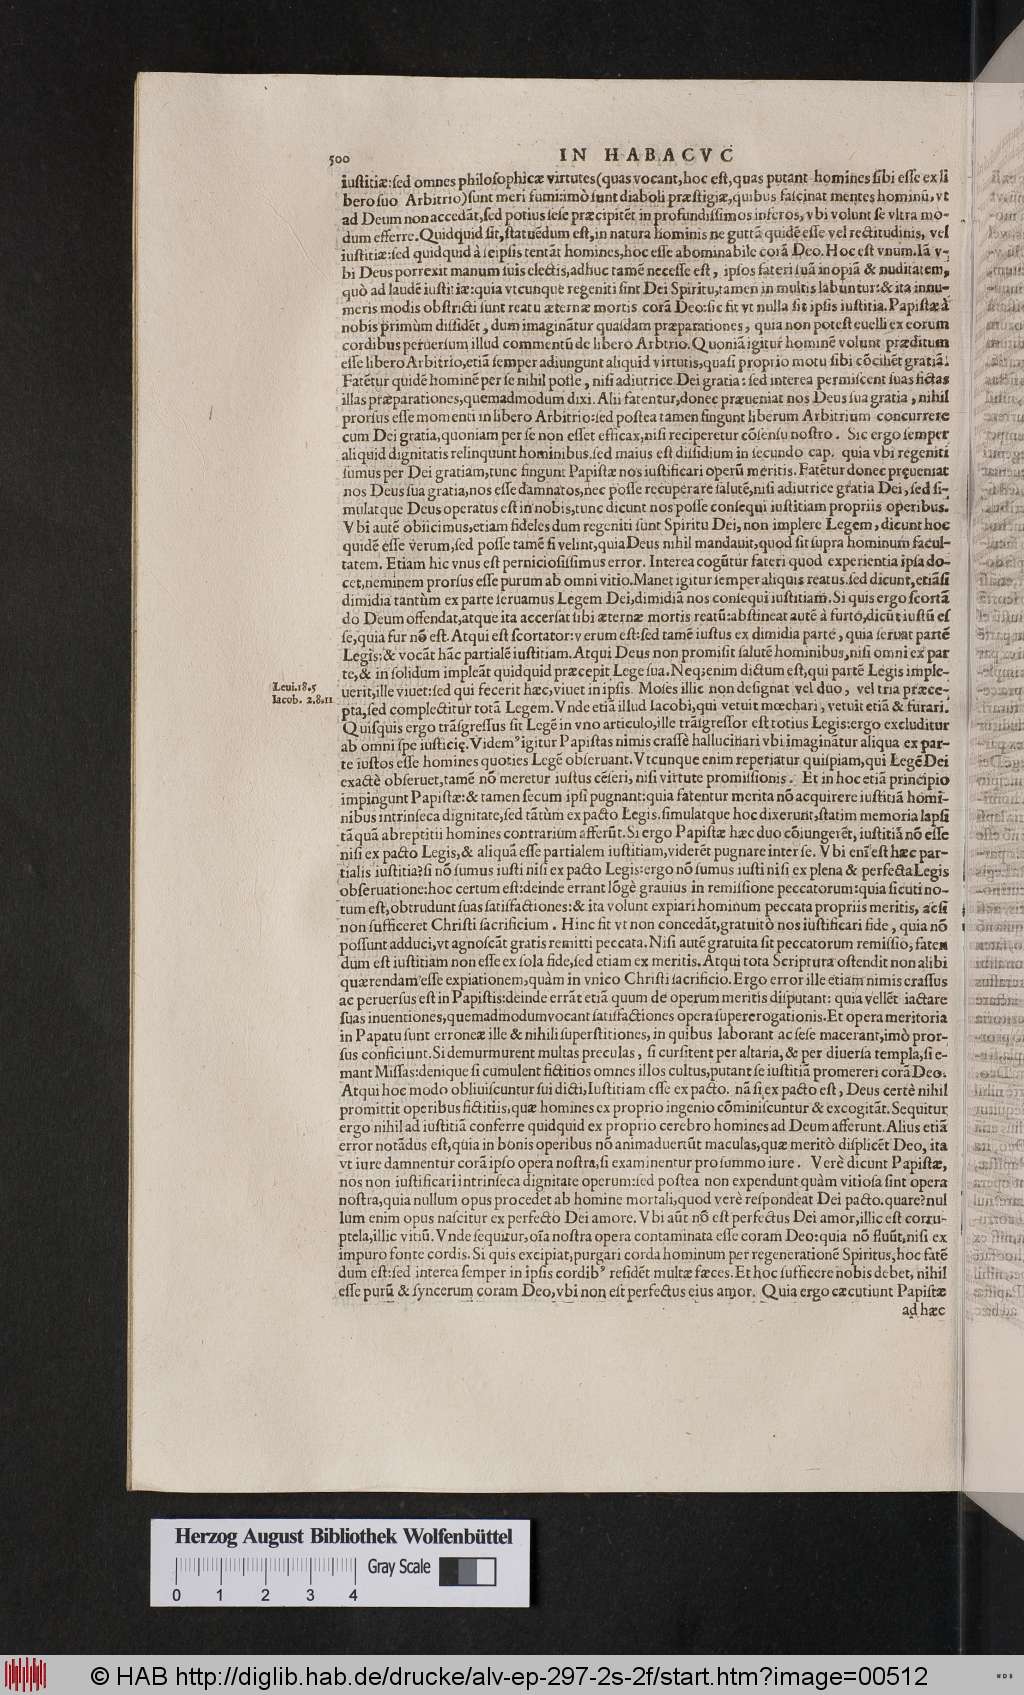 500
IN HABACVC
iuſtitiæ:ſed omnes philoſophicæ virtutes(quas vocant,hoc eſt,quas putant homines ſibi eſſe ex li
bero ſuo Arbitrio)ſunt meri fumi:imò ſunt diaboli præſtigiæ,quibus faſcinat mentes hominũ,vt
ad Deum non accedãt,ſed potius ſeſe præcipitẽt in profundiſſimos inferos,vbi volunt ſe vltra mo-
dum efferre.Quidquid ſit,ſtatuẽdum eſt,in natura hominis ne guttã quidẽ eſſe vel rectitudinis, vel
iuſtitiæ:ſed quidquid à ſeipſis tentãt homines,hoc eſſe abominabile corã Deo.Hoc eſt vnum.Iã v-
bi Deus porrexit manum ſuis electis,adhuc tamẽ neceſſe eſt, ipſos fateri ſuã inopiã & nuditatem,
quò ad laudẽ iuſtitiæ:quia vtcunque regeniti ſint Dei Spiritu,tamen in multis labuntur:& ita innu-
meris modis obſtricti ſunt reatu æternæ mortis corã Deo:ſic fit vt nulla ſit ipſis iuſtitia.Papiſtæ à
nobis primùm diſſidẽt, dum imaginãtur quaſdam præparationes, quia non poteſt euelli ex eorum
cordibus peruerſum illud commentũ de libero Arbtrio.Quoniã igitur hominẽ volunt præditum
eſſe libero Arbitrio,etiã ſemper adiungunt aliquid virtutis,quaſi proprio motu ſibi cõciliẽt gratiã.
Fatẽtur quidẽ hominẽ per ſe nihil poſſe, niſi adiutrice Dei gratia: ſed interea permiſcent ſuas fictas
illas præparationes,quemadmodum dixi.Alii fatentur,donec præueniat nos Deus ſua gratia, nihil
prorſus eſſe momenti in libero Arbitrio:ſed poſtea tamen fingunt liberum Arbitrium concurrere
cum Dei gratia,quoniam per ſe non eſſet efficax,niſi reciperetur cõſenſu noſtro. Sic ergo ſemper
aliquid dignitatis relinquunt hominibus.ſed maius eſt diſſidium in ſecundo cap. quia vbi regeniti
ſumus per Dei gratiam,tunc fingunt Papiſtæ nos iuſtificari operũ meritis.Fatẽtur donec pręueniat
nos Deus ſua gratia,nos eſſe damnatos,nec poſſe recuperare ſalutẽ,niſi adiutrice gratia Dei,ſed ſi-
mulatque Deus operatus eſt in nobis,tunc dicunt nos poſſe conſequi iuſtitiam propriis operibus.
Vbi autẽ obiicimus,etiam fideles dum regeniti ſunt Spiritu Dei,non implere Legem,dicunt hoc
quidẽ eſſe verum,ſed poſſe tamẽ ſi velint,quia Deus nihil mandauit,quod ſit ſupra hominum facul-
tatem. Etiam hic vnus eſt pernicioſiſſimus error. Interea cogũtur fateri quod experientia ipſa do-
cet,neminem prorſus eſſe purum ab omni vitio.Manet igitur ſemper aliquis reatus.ſed dicunt,etiãſi
dimidia tantùm ex parte ſeruamus Legem Dei,dimidiã nos conſequi iuſtitiam.Si quis ergo ſcortã
do Deum offendat,atque ita accerſat ſibi æternæ mortis reatũ:abſtineat autẽ à furto,dicũt iuſtũ eſ
ſe,quia fur nõ eſt.Atqui eſt ſcortator:verum eſt:ſed tamẽ iuſtus ex dimidia parte, quia ſeruat partẽ
Legis:& vocãt hãc partialẽ iuſtitiam.Atqui Deus non promiſit ſalutẽ hominibus,niſi omni ex par
te,& in ſolidum impleãt quidquid præcepit Lege ſua.Neq;enim dictum eſt,qui partẽ Legis imple-
Leui.18.5
uerit,ille viuet:ſed qui fecerit hæc,viuet in ipſis. Moſes illic non deſignat vel duo, vel tria præce-
Iacob. 2.8.11
pta,ſed complectitur totã Legem.Vnde etiã illud Iacobi,qui vetuit mœchari, vetuit etiã & furari.
Quiſquis ergo trãſgreſſus ſit Legẽ in vno articulo,ille trãſgreſſor eſt totius Legis:ergo excluditur
ab omni ſpe iuſticię.Videmꝰ igitur Papiſtas nimis craſſè hallucinari vbi imaginãtur aliqua ex par-
te iuſtos eſſe homines quoties Legẽ obſeruant.Vtcunque enim reperiatur quiſpiam,qui Legẽ Dei
exactè obſeruet,tamẽ nõ meretur iuſtus cẽſeri, niſi virtute promiſſionis. Et in hoc etiã principio
impingunt Papiſtæ:& tamen ſecum ipſi pugnant:quia fatentur merita nõ acquirere iuſtitiã homi-
nibus intrinſeca dignitate,ſed tãtùm ex pacto Legis.ſimulatque hoc dixerunt,ſtatim memoria lapſi
tãquã abreptitii homines contrarium afferũt.Si ergo Papiſtæ hæc duo cõiungerẽt, iuſtitiã nõ eſſe
niſi ex pacto Legis,& aliquã eſſe partialem iuſtitiam,viderẽt pugnare inter ſe. Vbi enĩ eſt hæc par-
tialis iuſtitia?ſi nõ ſumus iuſti niſi ex pacto Legis:ergo nõ ſumus iuſti niſi ex plena & perfecta Legis
obſeruatione:hoc certum eſt:deinde errant lõgè grauius in remiſſione peccatorum:quia ſicuti no-
tum eſt,obtrudunt ſuas ſatiſfactiones:& ita volunt expiari hominum peccata propriis meritis, acſi
non ſufficeret Chriſti ſacrificium. Hinc fit vt non concedãt,gratuitò nos iuſtificari fide, quia nõ
poſſunt adduci,vt agnoſcãt gratis remitti peccata.Niſi autẽ gratuita ſit peccatorum remiſſio, faten
dum eſt iuſtitiam non eſſe ex ſola fide,ſed etiam ex meritis.Atqui tota Scriptura oſtendit non alibi
quærendam eſſe expiationem,quàm in vnico Chriſti ſacrificio.Ergo error ille etiam nimis craſſus
ac peruerſus eſt in Papiſtis:deinde errãt etiã quum de operum meritis diſputant: quia vellẽt iactare
ſuas inuentiones,quemadmodum vocant ſatiſfactiones opera ſupererogationis.Et opera meritoria
in Papatu ſunt erroneæ ille & nihili ſuperſtitiones, in quibus laborant ac ſeſe macerant,imò pror-
ſus conficiunt.Si demurmurent multas preculas, ſi curſitent per altaria,& per diuerſa templa,ſi e-
mant Miſſas:denique ſi cumulent fictitios omnes illos cultus,putant ſe iuſtitiã promereri corã Deo.
Atqui hoc modo obliuiſcuntur ſui dicti,Iuſtitiam eſſe ex pacto. nã ſi ex pacto eſt, Deus certè nihil
promittit operibus fictitiis,quæ homines ex proprio ingenio cõminiſcuntur & excogitãt.Sequitur
ergo nihil ad iuſtitiã conferre quidquid ex proprio cerebro homines ad Deum afferunt.Alius etiã
error notãdus eſt,quia in bonis operibus nõ animaduertũt maculas,quæ meritò diſplicẽt Deo, ita
vt iure damnentur corã ipſo opera noſtra,ſi examinentur pro ſummo iure. Verè dicunt Papiſtæ,
nos non iuſtificari intrinſeca dignitate operum:ſed poſtea non expendunt quàm vitioſa ſint opera
noſtra,quia nullum opus procedet ab homine mortali,quod verè reſpondeat Dei pacto.quare?nul
lum enim opus naſcitur ex perfecto Dei amore.Vbi aũt nõ eſt perfectus Dei amor,illic eſt corru-
ptela,illic vitiũ.Vnde ſequitur,oĩa noſtra opera contaminata eſſe coram Deo:quia nõ fluũt,niſi ex
impuro fonte cordis.Si quis excipiat,purgari corda hominum per regenerationẽ Spiritus,hoc fatẽ
dum eſt:ſed interea ſemper in ipſis cordibꝰ reſidẽt multæ fæces.Et hoc ſufficere nobis debet, nihil
eſſe purũ & ſyncerum coram Deo,vbi non eſt perfectus eius amor. Quia ergo cæcutiunt Papiſtæ
ad hæc
Herzog August Bibliothek Wolfenbüttel
Gray Scale
0 1 2 3 4
© HAB http://diglib.hab.de/drucke/alv-ep-297-2s-2f/start.htm?image=00512